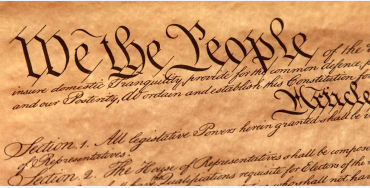 We the People of the
insure domestic Tranquility, provide for the common defence,
and our Posterity, do ordain and establish this Constitution for
Article
Section. 1. All legislative Powers herein granted shall be
of Representatives.
Section. 2. The House of Representatives shall be compose
Qualifications requisite for Electors of the
shall not ha